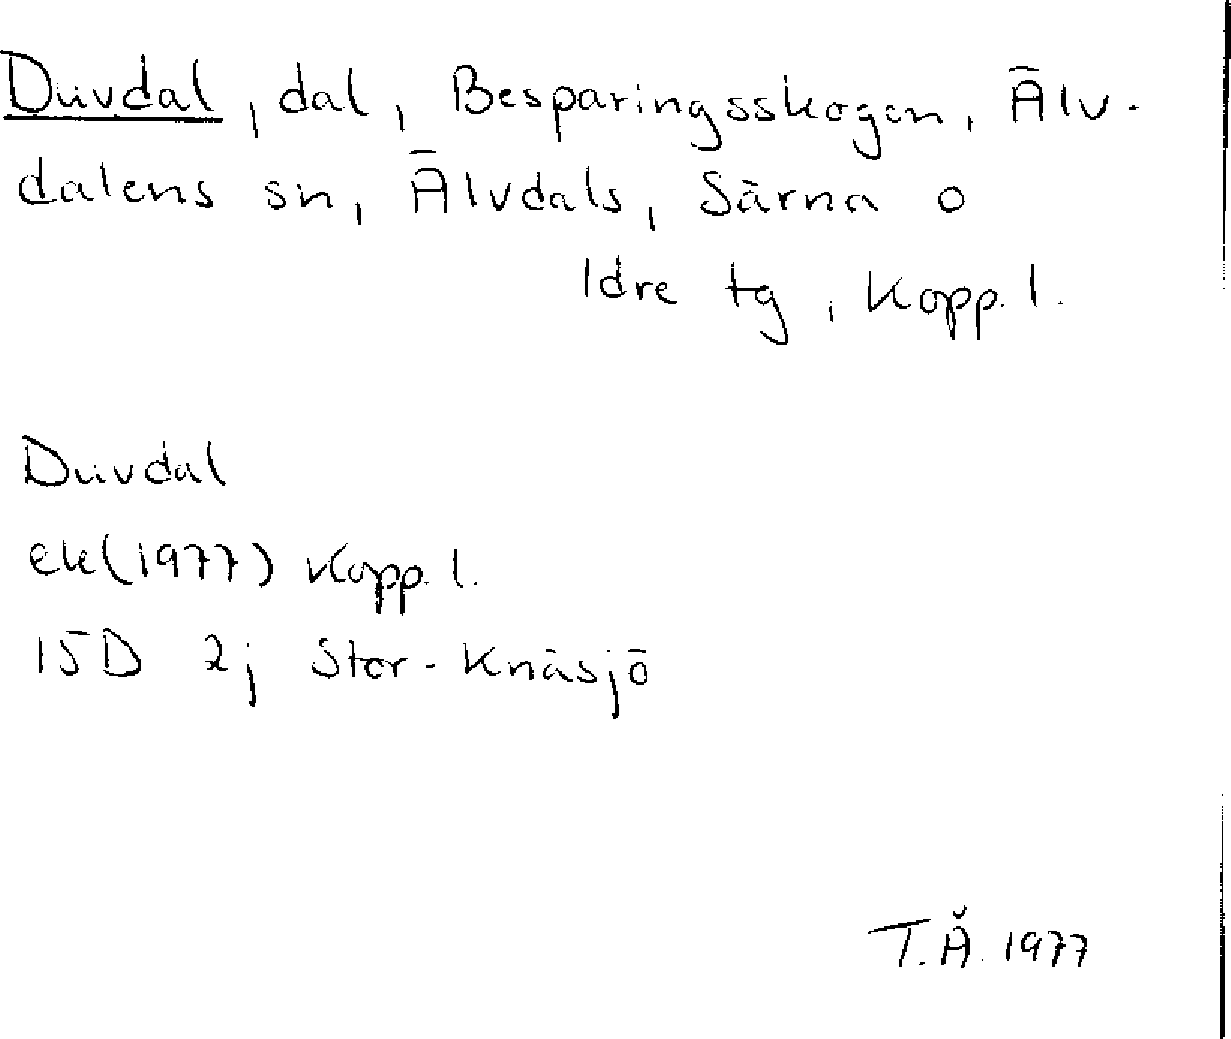 Duvdal, dal, Besparingsskogen, Älv-
dalens sn, Älvdals, Särna o
Idre tg, Kopp. l.
Duvdal
ek(1977) Kopp. l.
15D 2j Stor-Knäsjö
T.Å. 1977